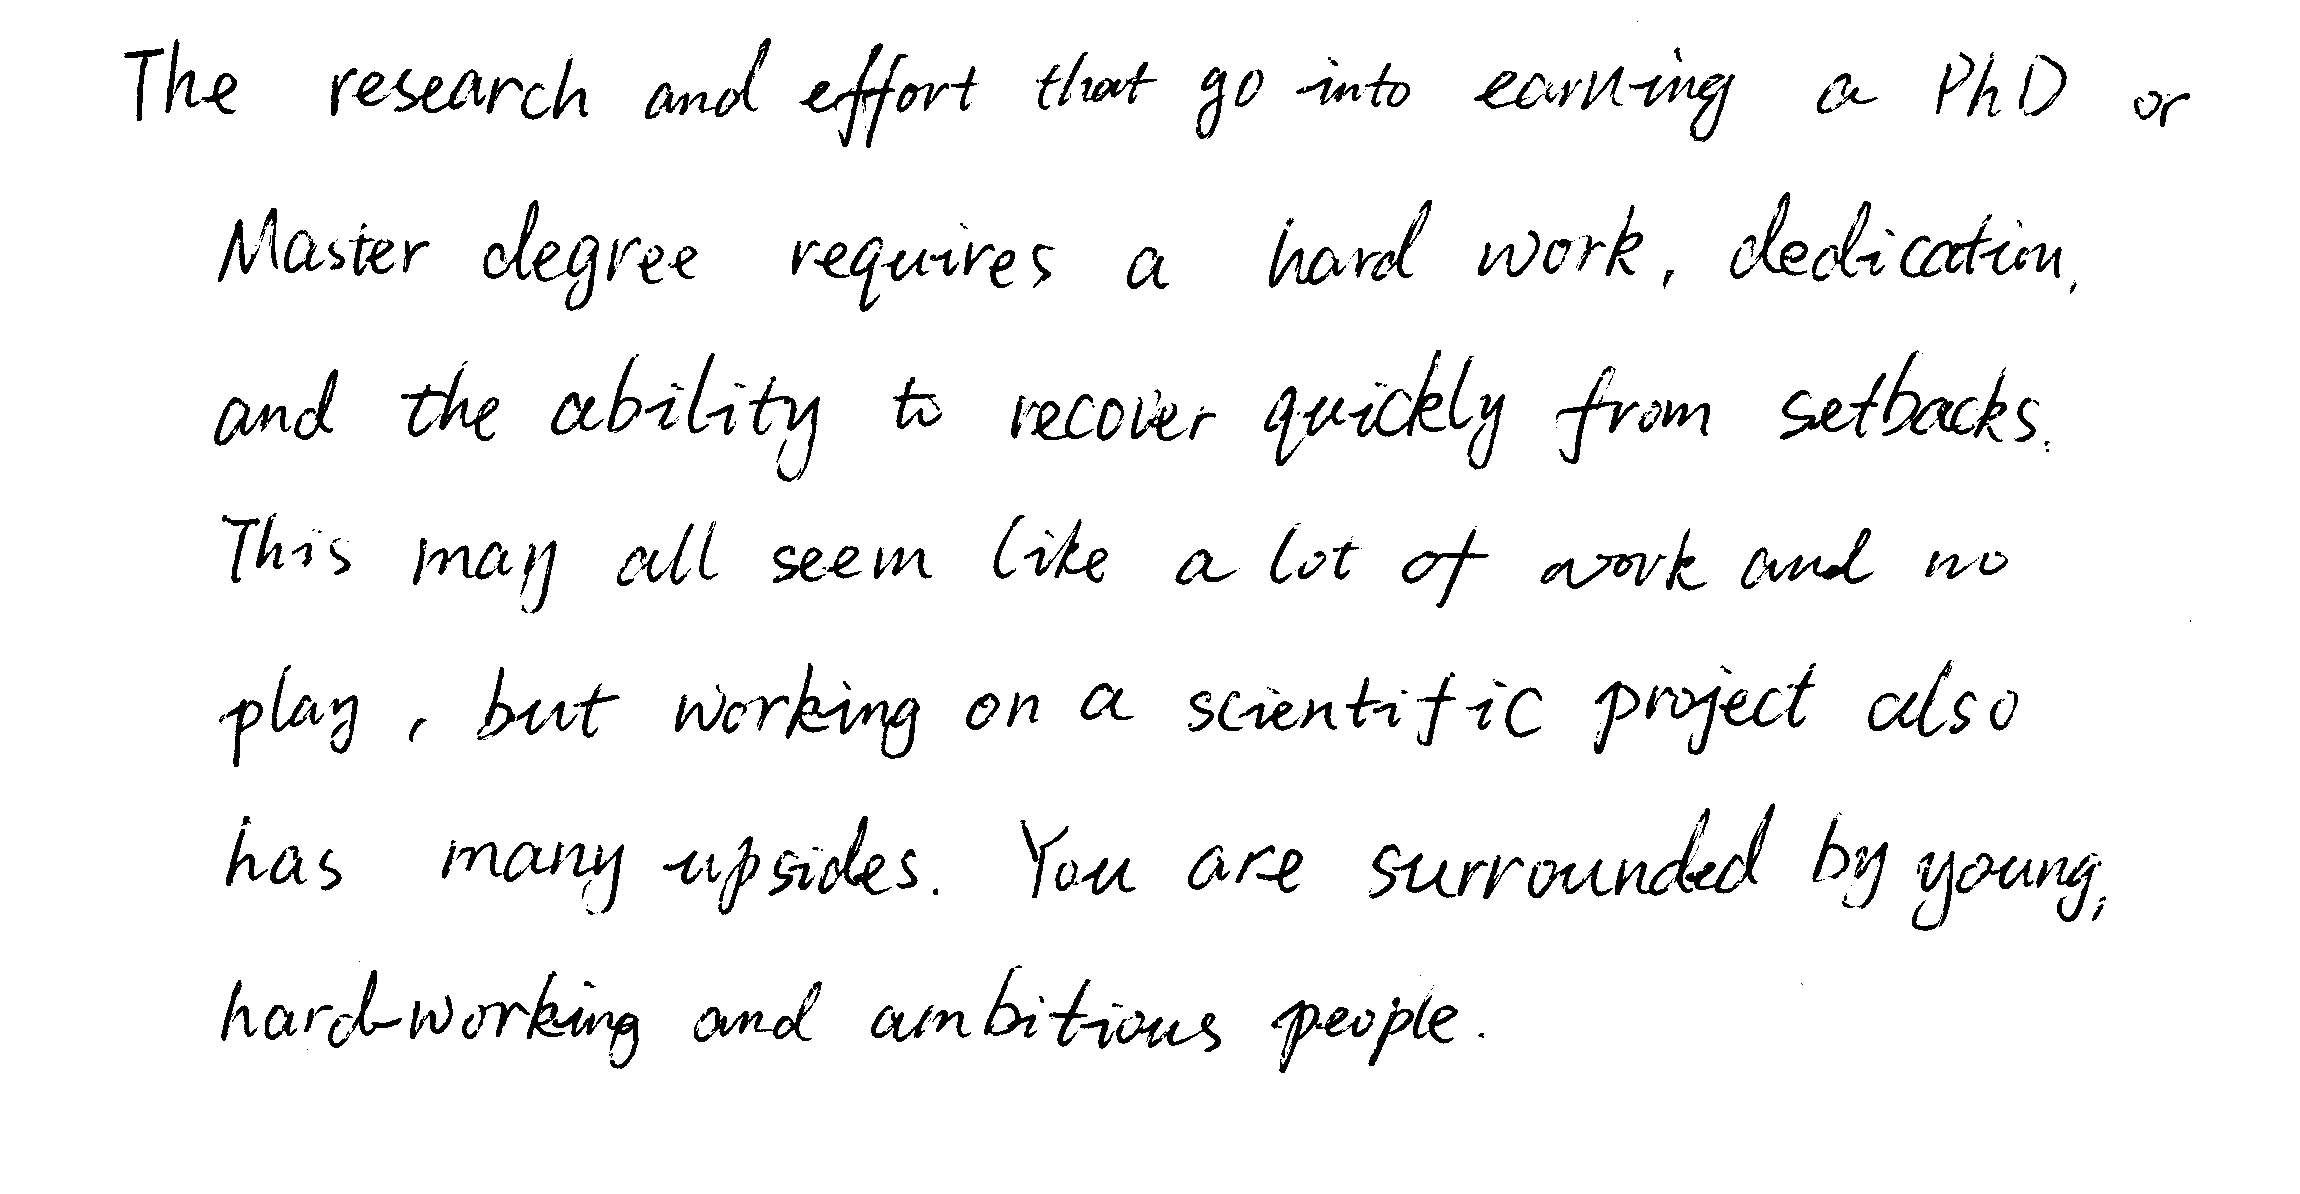 The research and effort that go into earning a PhD or
Master degree requires a hard work, dedication,
and the ability to recover quickly from setbacks.
This may all seem like a lot of work and no
play, but working on a scientific project also
has many upsides. You are surrounded by young,
hard-working and ambitious people.